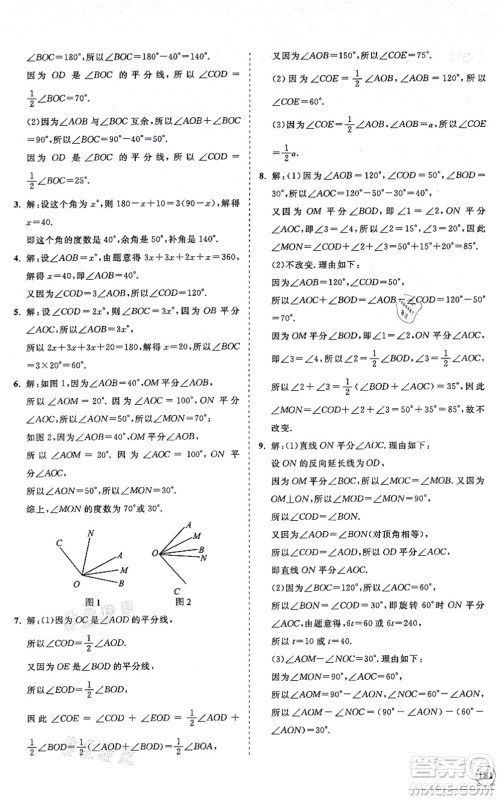 ∠BOC=180°，所以∠AOB+∠BOC=
∠BOC=180°，所以∠BOC=180°-40°=140°.
因为 OD 是∠BOC的平分线，所以∠COD=
1/2∠BOC=70°.
(2)因为∠AOB与∠BOC互余，所以∠AOB+∠BOC
=90°，所以∠BOC=90°-40°=50°.
因为 OD 是∠BOC的平分线，所以∠COD=
1/2∠BOC=25°.
4. 解：设这个角为x°，则180-x+10=3(90-x)，解得
x=40.
即这个角的度数是40°，余角是50°，补角是140°.
5. 解：设∠AOB=x°，由题意得3x+3x+2x+x=360，
解得x=40，即∠AOB=40°.
又因为∠COD=3∠AOB，所以∠COD=120°.
6. 解：设∠COD=2x°，则∠BOC=3x°，因为OB平分
∠AOC，所以∠AOB=3x°.
所以2x+3x+3x+20=180，解得x=20，所以∠BOC
=3×20°=60°.
7. 解：如图1，因为∠AOB=40°，OM平分∠AOB，所以
∠AOM=20°.
因为∠BOC=60°，所以∠AOC=100°.
因为ON平分∠AOC，所以∠AON=50°.
所以∠MON=50°-20°=30°.
如图2，因为∠AOB=40°，OM平分∠AOB，
所以∠AOM=20°.
因为∠BOC=60°，所以∠AOC=20°，因为ON平
分∠AOC，
所以∠AON=10°，所以∠MON=10°.
综上，∠MON的度数为30°或10°.
C N A M B O
A M B O C
图1 图2
7. 解：(1)因为OC是∠AOD的平分线，
所以∠COD=1/2∠AOD.
又因为OE是∠BOD的平分线，
所以∠DOE=1/2∠BOD，
因此∠COE=∠COD+∠DOE=1/2∠AOD+
1/2∠BOD=1/2(∠AOD+∠BOD)=1/2∠BOA，
又因为∠AOB=150°，所以∠COE=75°.
(2)因为∠AOB=120°，∠COE=1/2∠AOB，
所以∠COE=60°.
(3)因为∠COE=1/2∠AOB，∠AOB=α，所以∠COE=
1/2α.
8. 解：(1)因为∠AOB=120°，∠COD=60°，∠BOD=
30°，所以∠AOC=30°.
又因为OM平分∠AOC，ON平分∠BOD，
所以∠AOM=∠MOC=15°，∠DON=∠NOB=15°，
所以∠MON=∠MOC+∠COD+∠DON=15°+60°+15°
=90°.
(2)不改变.理由如下：
因为∠AOC+∠BOD=∠AOB-∠COD=120°-50°
=70°.
又因为OM平分∠AOC，所以∠1=∠2=1/2∠AOC.
因为ON平分∠BOD，所以∠3=∠4=1/2∠BOD，
即∠2+∠3=1/2∠AOC+1/2∠BOD=35°，
所以∠MON=∠2+∠3+∠COD=35°+50°=85°，故
不改变.
9. 解：(1)直线ON平分∠AOC.理由如下：
设ON的反向延长线为OD，
因为OM平分∠BOC，所以∠MOC=∠MOB.因为
OM⊥ON，所以∠MOD=∠MON=90°，
所以∠COD=∠BON.
又因为∠AOD=∠BON(对顶角相等)，
所以∠COD=∠AOD，所以OD平分∠AOC，
即直线ON平分∠AOC.
(2)因为∠BOC=120°，
所以∠AOC=60°，所以∠BON=∠COD=30°，
即旋转60°时ON平分∠AOC，
由题意得6t=60°或240°，
所以t=10或40.
(3)因为∠MON=90°，∠AOC=60°，
所以∠AOM=90°-∠AON，∠NOC=60°-∠AON，
所以∠AOM-∠NOC=(90°-∠AON)-(60°-
∠AON)=30°.
181
答案圈